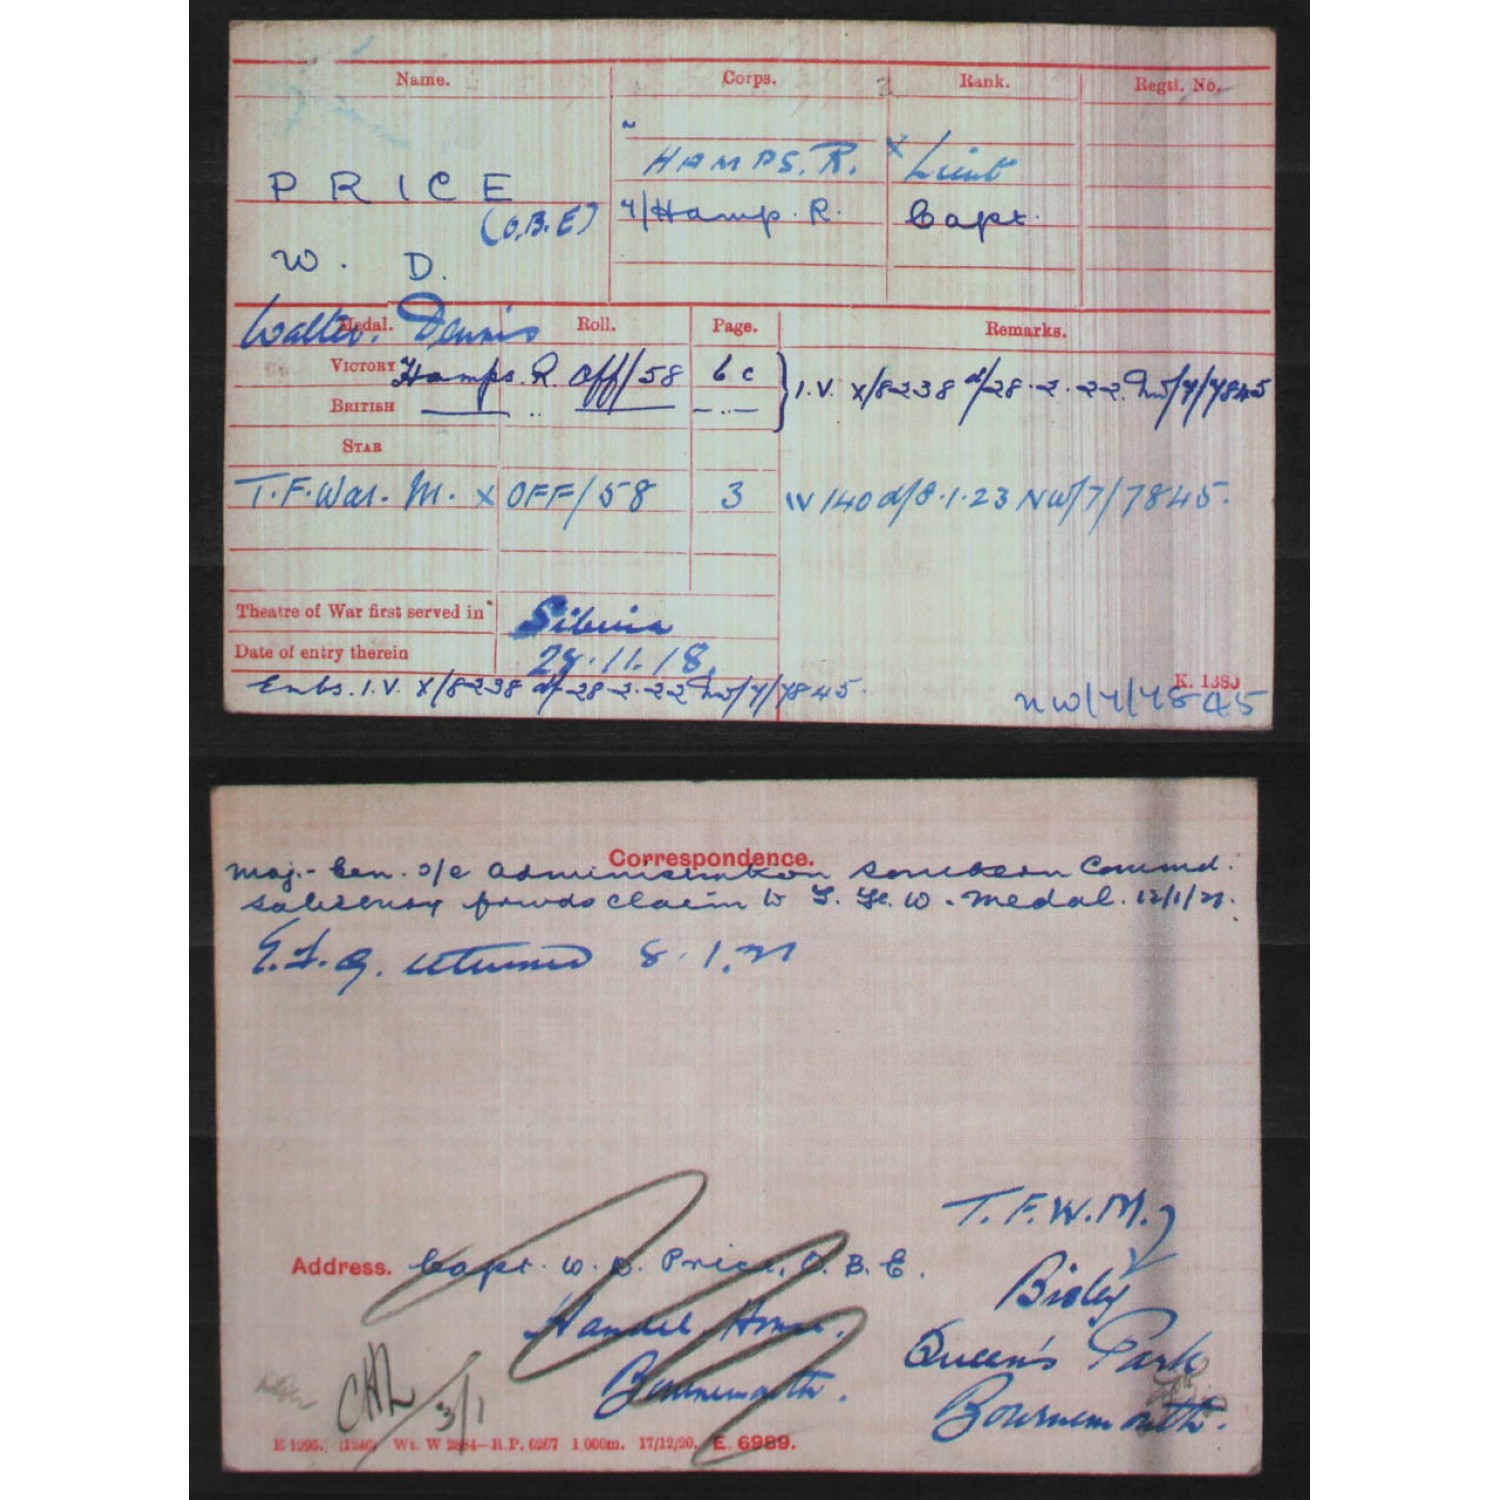 Name. Corps. Rank. Regtl. No.
HAMPS. R. x Lieut
PRICE
4/Hamp. R. Capt.
(O.B.E)
W. D.
Walter Dennis
Medal. Roll. Page. Remarks.
VICTORY Hamps. R. Off/58 6 c I.V. X/8238 d/28.2.22. NW/7/7845
BRITISH — " — — " —
STAR
T.F. War. M. x OFF/58 3 W/140 d/8.1.23 NW/7/7845.
Theatre of War first served in Siberia
Date of entry therein .11.18.
Embs. I.V. X/8238 d/ 28-2-22 NW/7/7845.
K. 1380
NW/7/7845
Correspondence.
Maj.-Gen. i/c Administration Southern Commd.
Salisbury forwds claim to T. Fc. W. Medal.
returned 8.1.
T.F.W.M.
Address. Capt. W. D. Price, O.B.E.
Bisley
Handel House.
Queen's Park
Bournemouth.
Bournemouth.
3/1
E 1995. (1246) Wt. W 2884—R.P. 6267 1,000m. 17/12/20. E. 6989.